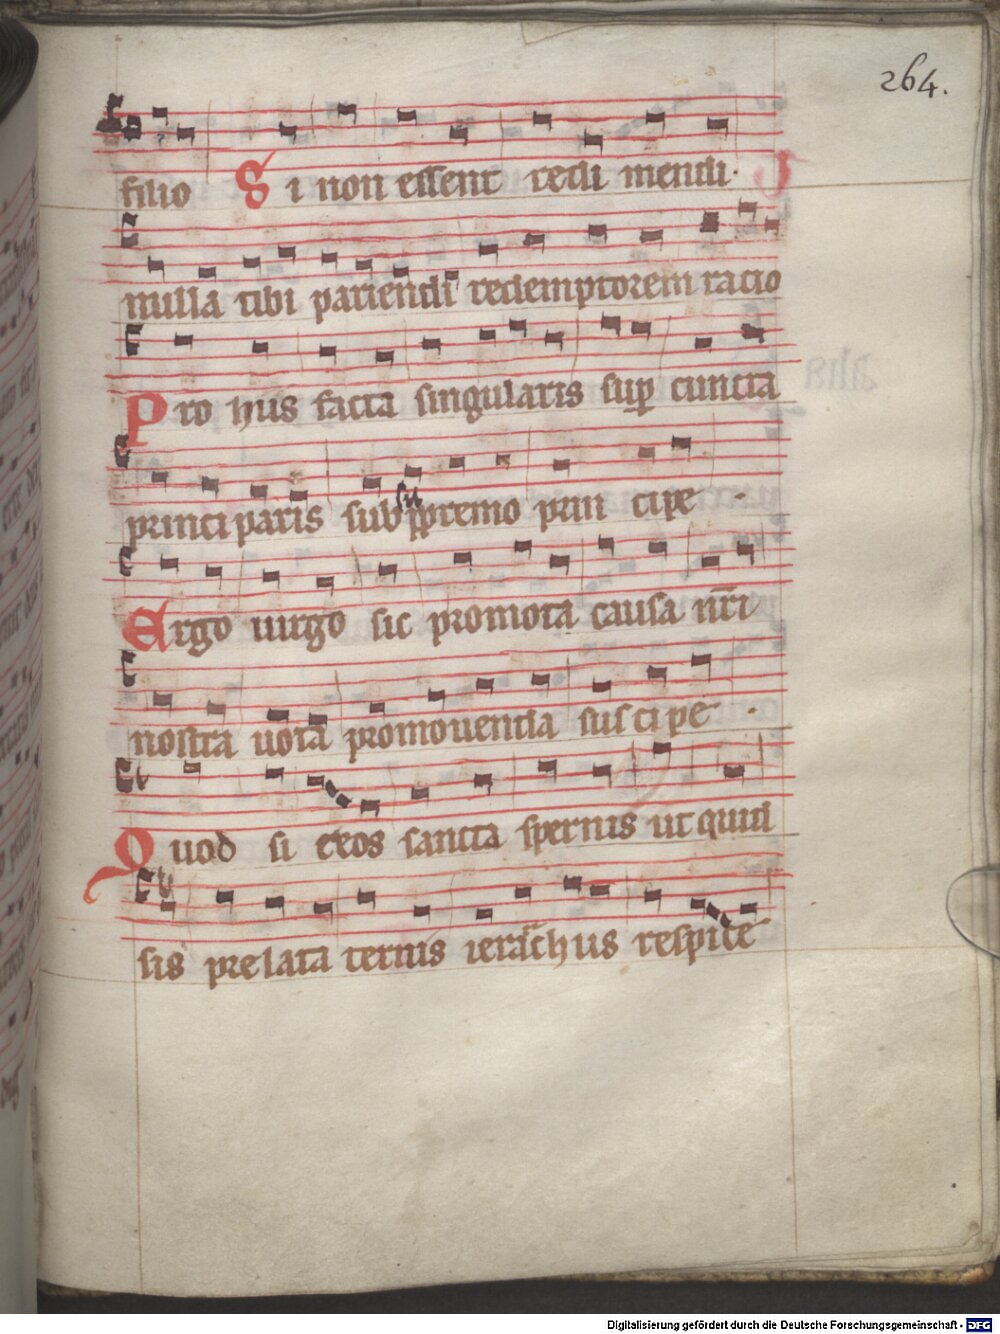 264.
filio Si non essent redimendi.
nulla tibi pariendi redemptorem racio
Pro hiis facta singularis sup cuncta
principaris sub suppremo principe .
Ergo uirgo sic promota causa nr̄i
nostra uota promouenda suscipe .
Quod si exos sancta spernis ut quid
sis prelata ternis ierarchiis respice
Digitalisierung gefördert durch die Deutsche Forschungsgemeinschaft - DFG